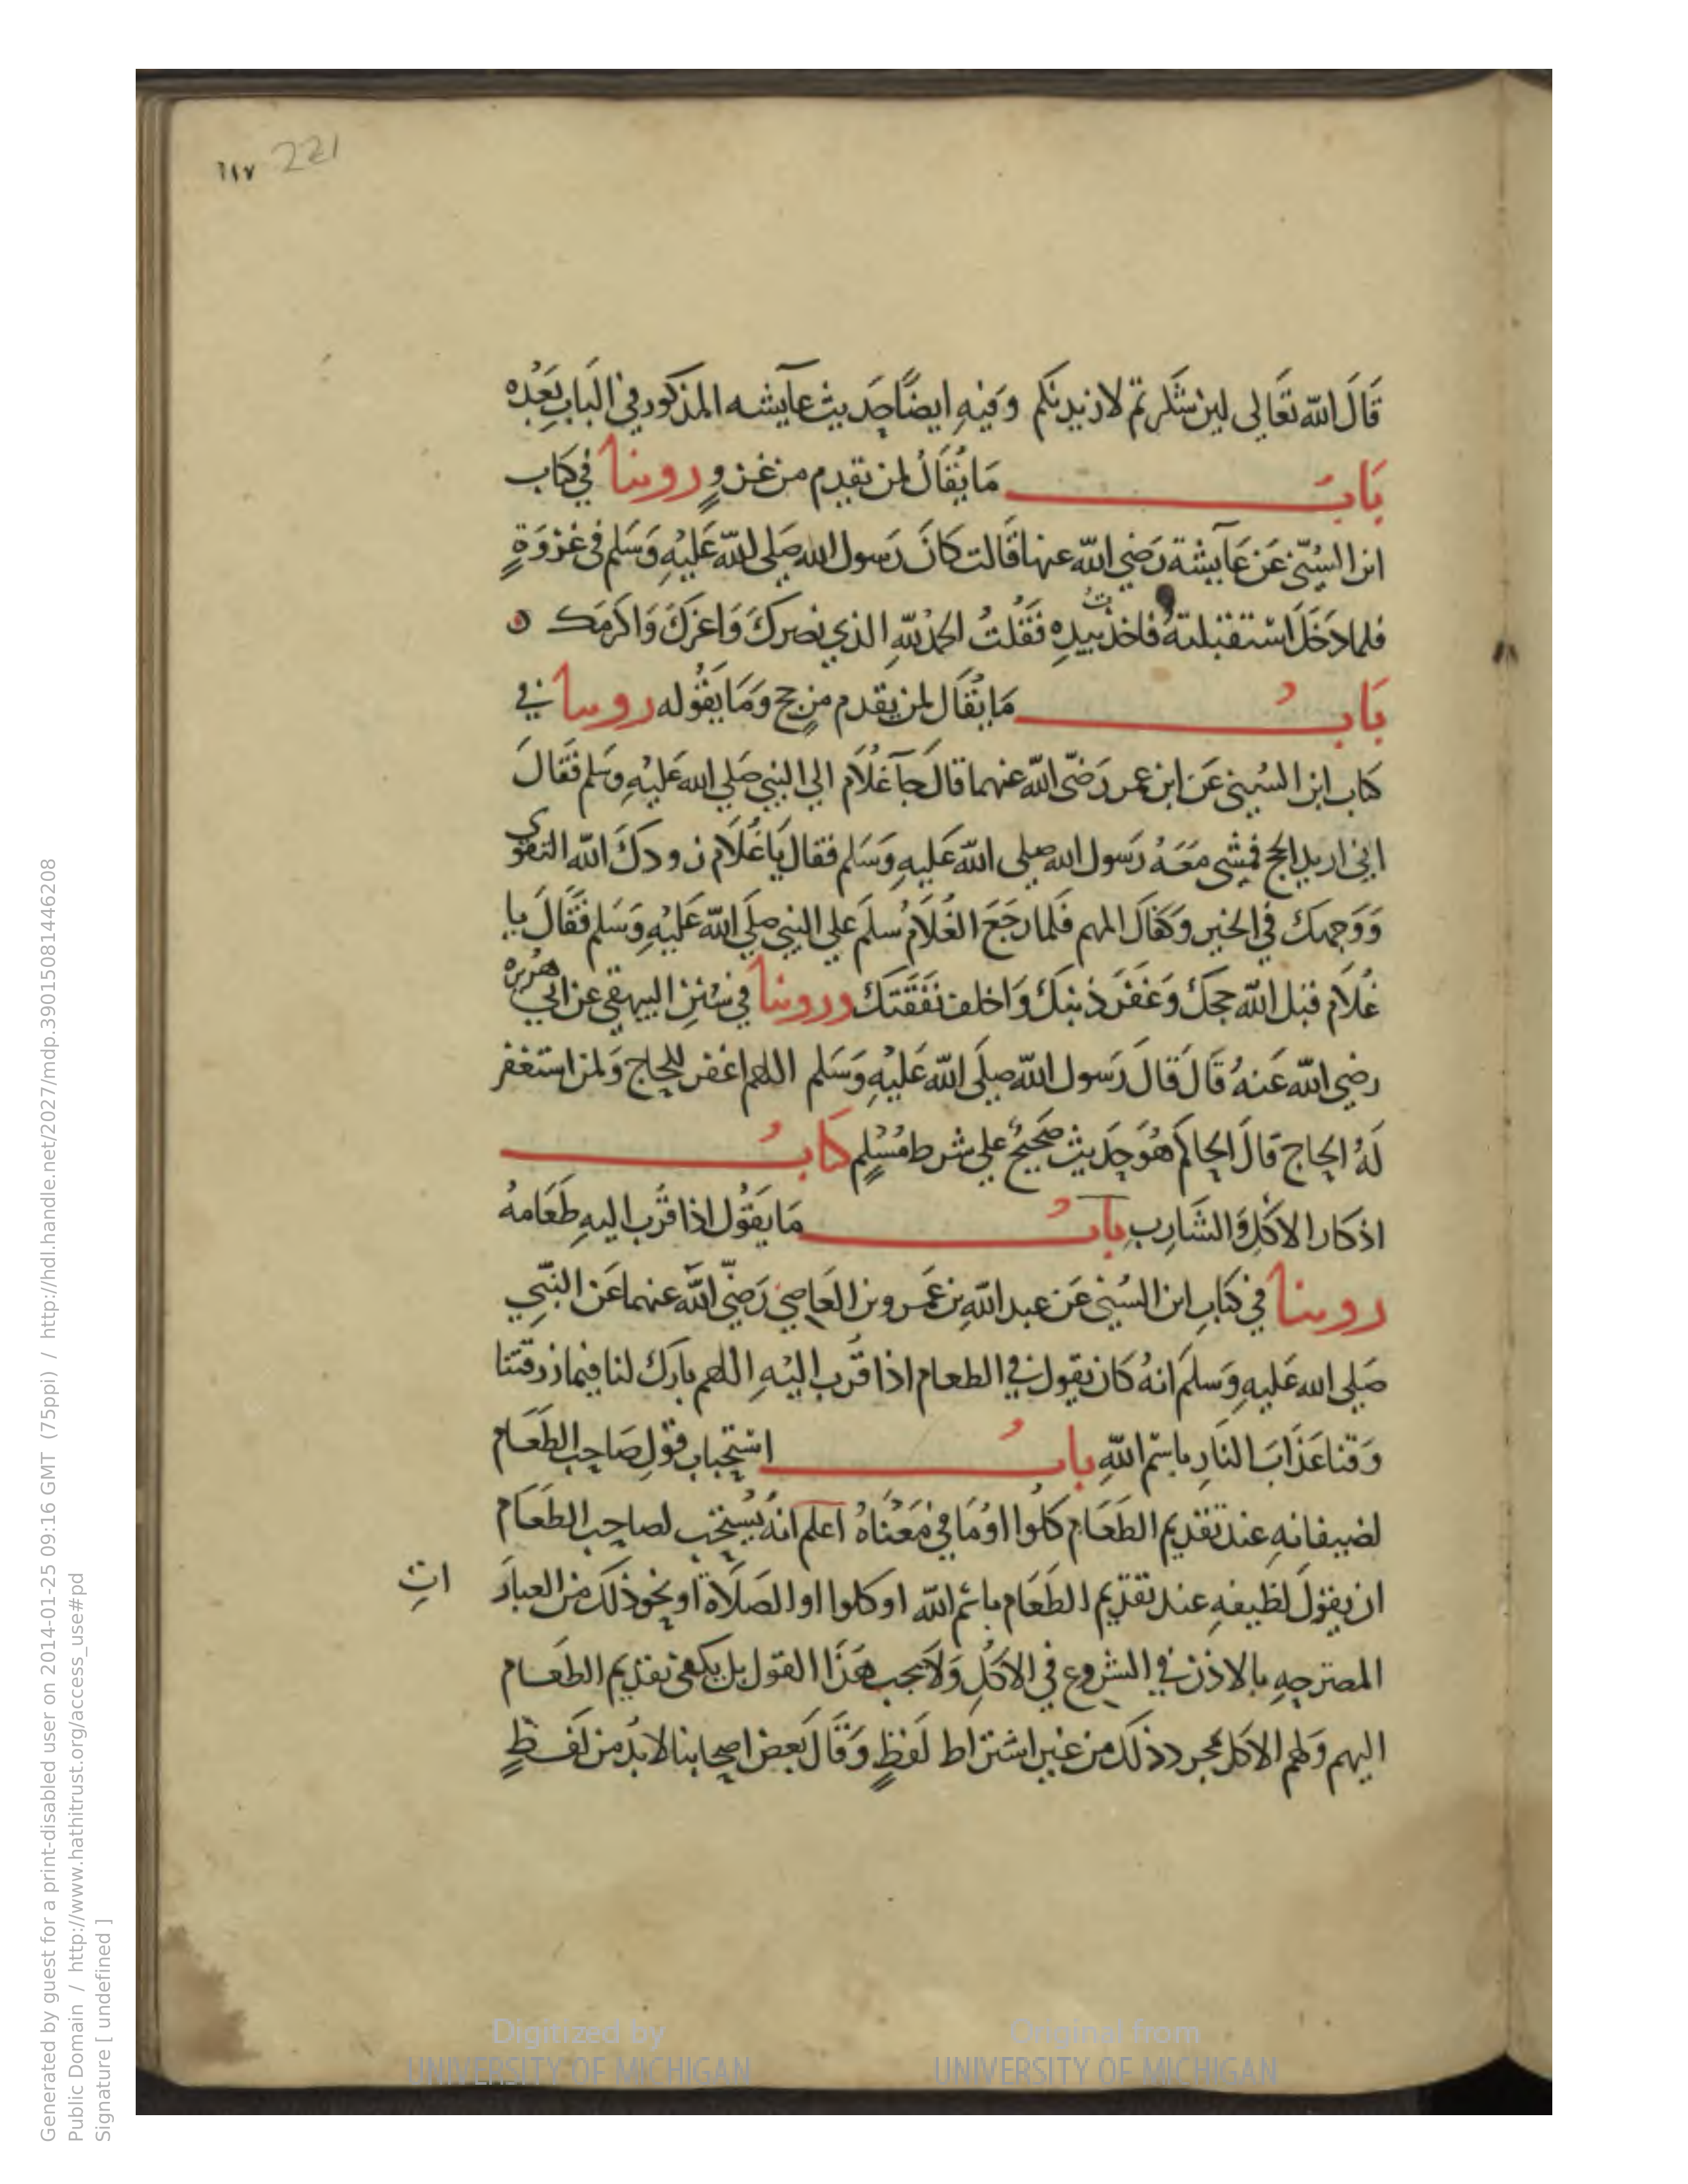 221 ١١٧
قَالَ اللّه تَعَالى لين شكرتم لازيدنكم وَفيهِ ايضًا حَديث عآيشه المذكور في البَابِ بَعْدُه
بَابُ مَا يُقَالُ لمن يقدم من غزوٍ روينا في كتاب
ابن السُنّي عَن عَآيشة رَضي اللّه عنها قَالت كانَ رَسول الله صَلى اللّه عَليْهِ وَسَلم فى غزوَةٍ
فلما دَخَلَ استقبلتهُ فاخذت بيدِهِ فَقُلتُ الحمدُ للّهِ الذي نصركَ وَاعزكَ وَاكرَمَك
بَابُ مَا يُقَال لمن يقدم من حجٍ وَمَا يَقُوله روينا في
كتاب ابن السُني عَن ابن عمر رَضي اللّه عنهما قالَ جآ غُلَام الي النبي صَلي الله عَليْهِ وسَلم فَقَالَ
اني اريد الحج فمشى مَعَهُ رَسول الله صلى اللّه عَليهِ وَسَلم فقال يَا غُلَام زودكَ اللّه التقوى
وَوَجهك في الخير وَكفاك المهم فَلما رَجَعَ الغُلَامُ سلمَ علي النبي صلَي اللّه عَليْهِ وَسَلم فَقَالَ يا
غُلَام قبل اللّه حجكَ وَغَفَرَ ذنبكَ وَاخلف نَفَقَتكَ وروينا في سُنَنِ البيهقي عن ابي هُريره
رضي اللّه عَنهُ قَالَ قَالَ رَسول اللّه صلَى اللّه عَليْهِ وَسَلم اللهم اغفر للحاج وَلمن استغفر
لَهُ الحاج قالَ الحاكم هُوَ حَديث صَحيحٌ علي شرط مُسْلِمٍ كتابُ
اذكار الاكل وَالشَارِب بابُ مَا يَقُول اذا قُرب اليهِ طَعَامهُ
روينا في كتاب ابن السُني عَن عبد اللّهِ بن عَمرو بن العَاصِي رَضّي اللّه عنهما عَن النّبي
صَلى الله عَليهِ وَسلمَ انهُ كان يقول في الطعام اذا قُرب اليْهِ اللهم بارك لنا فيما رزقتنا
وَقنا عَذابَ النَارِ باسْم اللّهِ بابُ استحباب قولِ صَاحِب الطعَام
لضيفانهِ عند تقديم الطعَام كلُوا اوْ مَا في مَعْناهُ اعلم انهُ يُستَحب لصاحِب الطعَام
ان يقولَ لظيفهِ عند تقدِيم الطعَام باسْم اللّه او كلوا او الصَلَاة او نحو ذلك من العبارَ اتِ
المصترحِهِ بالاذن في الشروع في الاكلِ وَلَا يجب هَذا القول بل يكفي تقديم الطعام
اليهم وَلهم الاكل بمجرد ذلك من غير اشتراط لَفظٍ وَقَالَ بَعض اصحابنا لا بُد من لَفظٍ
Generated by guest for a print-disabled user on 2014-01-25 09:16 GMT (75ppi) / http://hdl.handle.net/2027/mdp.39015081446208
Public Domain / http://www.hathitrust.org/access_use#pd
Signature [ undefined ]
Digitized by
UNIVERSITY OF MICHIGAN
Original from
UNIVERSITY OF MICHIGAN